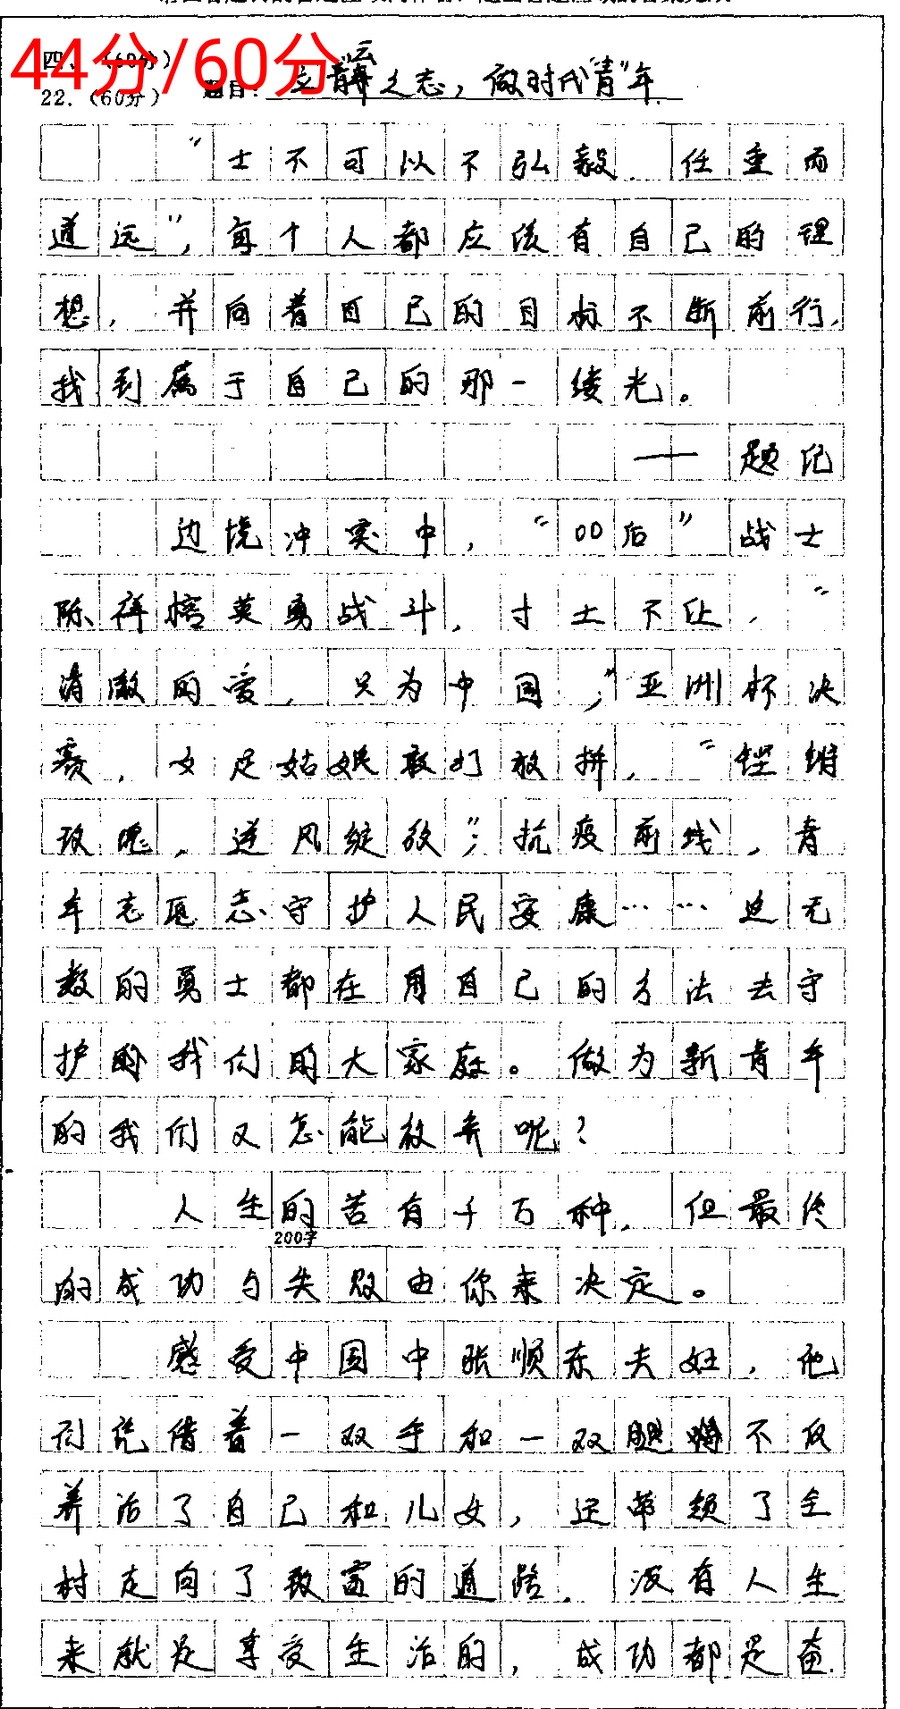 四、（60分）
44分/60分
22.（60分） 题目：立青云之志，做时代"青"年
"士不可以不弘毅，任重而
道远"，每个人都应该有自己的理
想，并向着自己的目标不断前行，
找到属于自己的那一缕光。
——题记
边境冲突中，"00后"战士
陈祥榕英勇战斗，寸土不让，"
清澈的爱，只为中国；"亚洲杯决
赛，女足姑娘敢打敢拼，"铿锵
玫瑰，逆风绽放"；抗疫前线，青
年志愿志守护人民安康……这无
数的勇士都在用自己的方法去守
护我们的大家庭。做为新青年
的我们又怎能放弃呢？
人生的苦有千百种，但最终
200字
的成功与失败由你来决定。
感受中国中张顺东夫妇，他
们凭借着一双手和一双腿不仅
养活了自己和儿女，还带领了全
村走向了致富的道路。没有人生
来就是享受生活的，成功都是奋